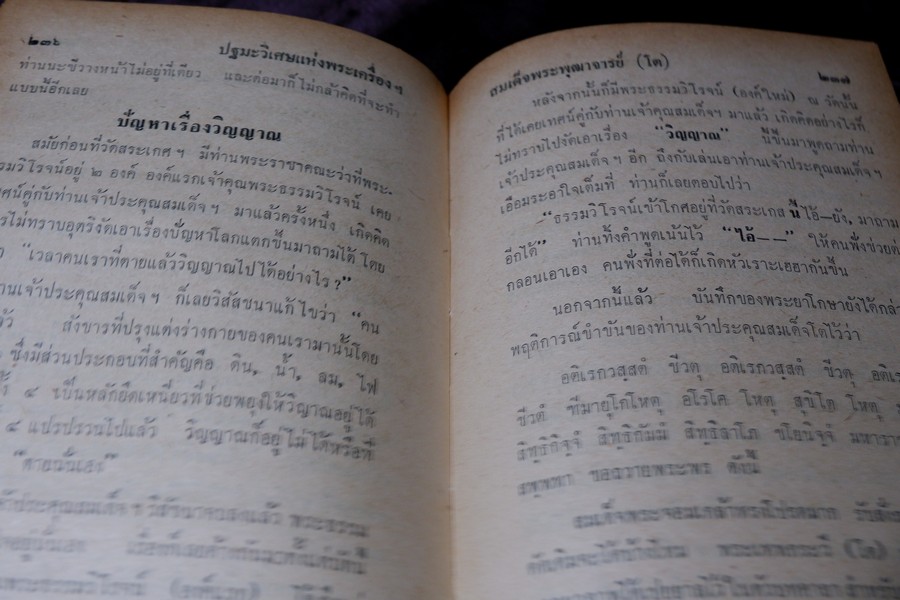 ๒๓๖ ปฐมะวิเศษแห่งพระเครื่องฯ
ท่านนะซีวางหน้าไม่อยู่ที่เดียว และต่อมาก็ไม่กล้าคิดที่จะทำ
แบบนี้อีกเลย
ปัญหาเรื่องวิญญาณ
สมัยก่อนที่วัดสระเกศฯ มีท่านพระราชาคณะว่าที่พระ-
ธรรมวิโรจน์อยู่ ๒ องค์ องค์แรกเจ้าคุณพระธรรมวิโรจน์ เคย
เทศน์คู่กับท่านเจ้าประคุณสมเด็จฯ มาแล้วครั้งหนึ่ง เกิดคิด
ไรไม่ทราบอุตริงัดเอาเรื่องปัญหาโลกแตกขึ้นมาถามได้ โดย
"เวลาคนเราที่ตายแล้ววิญญาณไปได้อย่างไร?"
ท่านเจ้าประคุณสมเด็จฯ ก็เลยวิสัสชนาแก้ไขว่า "คน
สังขารที่ปรุงแต่งร่างกายของคนเรามานั้นโดย
ซึ่งมีส่วนประกอบที่สำคัญคือ ดิน, น้ำ, ลม, ไฟ
๔ เป็นหลักยึดเหนี่ยวที่ช่วยพยุงให้วิญาณอยู่ได้
๔ แปรปรวนไปแล้ว วิญญาณก็อยู่ไม่ได้หรือที่
"ตายนั่นเอง"
พระธรรม
สมเด็จพระพุฒาจารย์ (โต) ๒๓๗
หลังจากนั้นก็มีพระธรรมวิโรจน์ (องค์ใหม่) ณ วัดนั้น
ที่ได้เคยเทศน์คู่กับท่านเจ้าคุณสมเด็จฯ มาแล้ว เกิดคิดอย่างไรก็
ไม่ทราบไปงัดเอาเรื่อง "วิญญาณ" นี้ขึ้นมาพูดถามท่าน
เจ้าประคุณสมเด็จฯ อีก ถึงกับเล่นเอาท่านเจ้าประคุณสมเด็จฯ
เอือมระอาใจเต็มที่ ท่านก็เลยตอบไปว่า
"ธรรมวิโรจน์เข้าโกศอยู่ที่วัดสระเกส นี่ไอ้-ยัง, มาถาม
อีกได้" ท่านทั้งคำพูดเน้นไว้ "ไอ้——" ให้คนฟังช่วยต่อ
กลอนเอาเอง คนฟังที่ต่อได้ก็เกิดหัวเราะเฮฮากันขึ้น
นอกจากนี้แล้ว บันทึกของพระยาโกษายังได้กล่าว
พฤติการณ์ขำขันของท่านเจ้าประคุณสมเด็จโตไว้ว่า
อติเรกวสฺสตํ ชีวตุ อติเรกวสฺสตํ ชีวตุ
ชีวตํ ทีฆายุโกโหตุ อโรโค โหตุ สุขิโต โหตุ
สิทฺธิกิจฺจํ สิทฺธิกัมมํ สิทฺธิลาโภ ชโยนิจฺจํ
ขอถวายพระพร ดังนี้